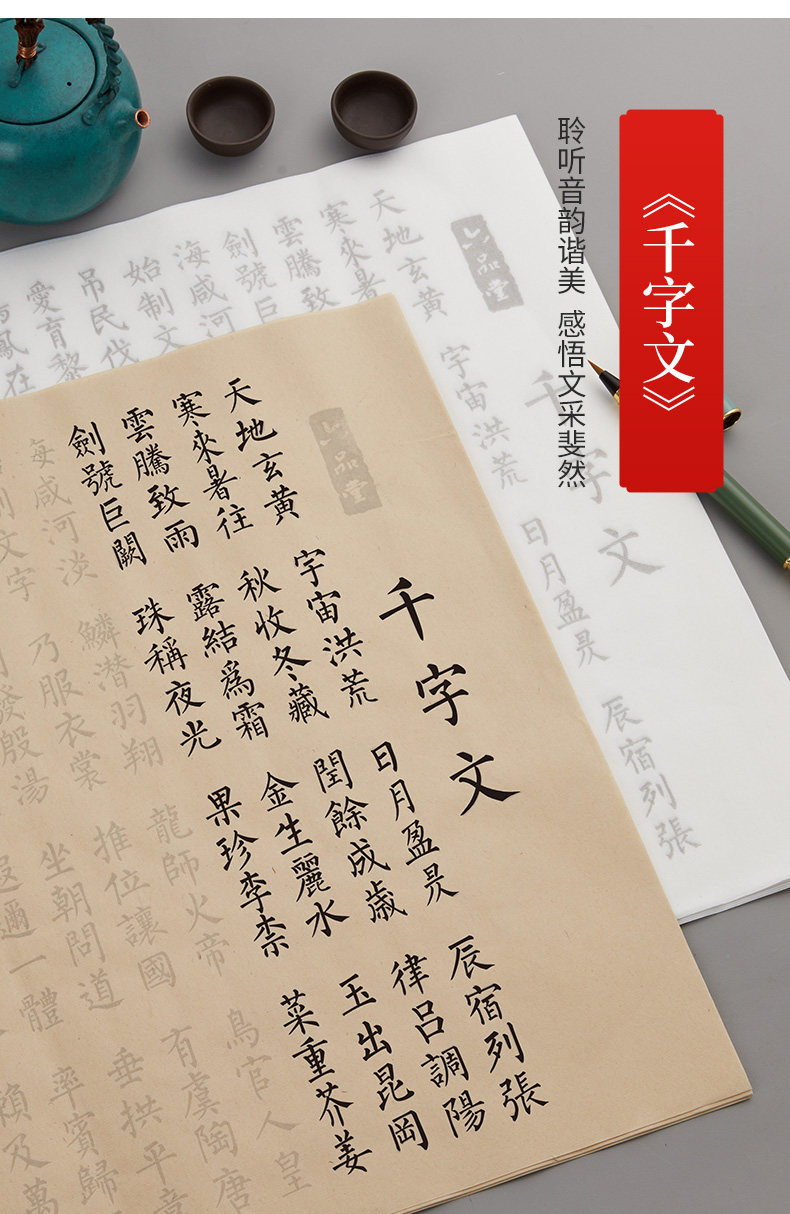 《千字文》
聆听音韵谐美 感悟文采斐然
六品堂
千字文
天地玄黃 宇宙洪荒 日月盈昃 辰宿列張
寒來暑
雲騰致
劍號巨
海咸河
始制文
吊民伐
愛育黎
鳳在
六品堂
千字文
天地玄黃 宇宙洪荒 日月盈昃 辰宿列張
寒來暑往 秋收冬藏 閏餘成歲 律呂調陽
雲騰致雨 露結爲霜 金生麗水 玉出昆岡
劍號巨闕 珠稱夜光 果珍李柰 菜重芥姜
海咸河淡 鱗潛羽翔 龍師火帝 鳥官人皇
文字 乃服衣裳 推位讓國 有虞陶唐
發殷湯 坐朝問道 垂拱平章
邇一體 率賓歸
賴及萬